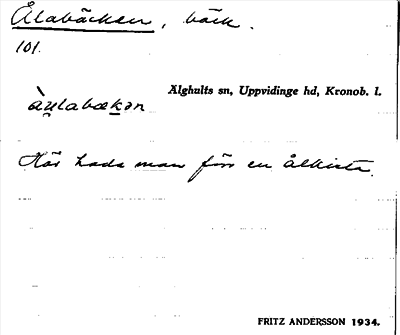 Ålabäcken, bäck.
101.
Älghults sn, Uppvidinge hd, Kronob. l.
àu̯labækən
Här hade man förr en ålkista.
FRITZ ANDERSSON 1934.